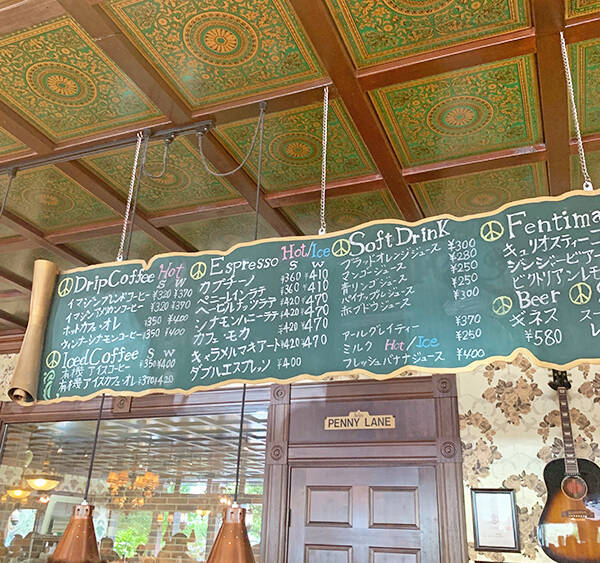 DripCoffee Hot
S W
イマジンブレンドコーヒー ¥320 ¥370
¥320 ¥370
ホットカフェ・オレ ¥350 ¥400
ウィンナーシナモンコーヒー ¥350 ¥400
Iced Coffee S W
有機 アイスコーヒー ¥350
有機 アイスカフェ・オレ ¥370 ¥420
Espresso Hot/Ice
S W
カプチーノ ¥360 ¥410
ペニーレインラテ ¥360 ¥410
ヘーゼルナッツラテ ¥420 ¥470
シナモンハニーラテ ¥420 ¥470
カフェ・モカ ¥420 ¥470
キャラメルマキアート ¥420 ¥470
ダブルエスプレッソ ¥400
Soft Drink
ブラッドオレンジジュース ¥300
マンゴージュース ¥250
青リンゴジュース ¥250
パイナップルジュース ¥250
ホワイトウジュース ¥300
アールグレイティー ¥370
ミルク Hot/Ice ¥250
フレッシュバナナジュース ¥400
Fentima
キュリオスティー
ジンジービア
ビクトリアンレモ
Beer
ギネス
¥580
PENNY LANE